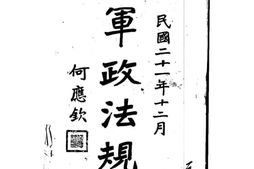 民國二十一年十二月
軍政法規
何應欽